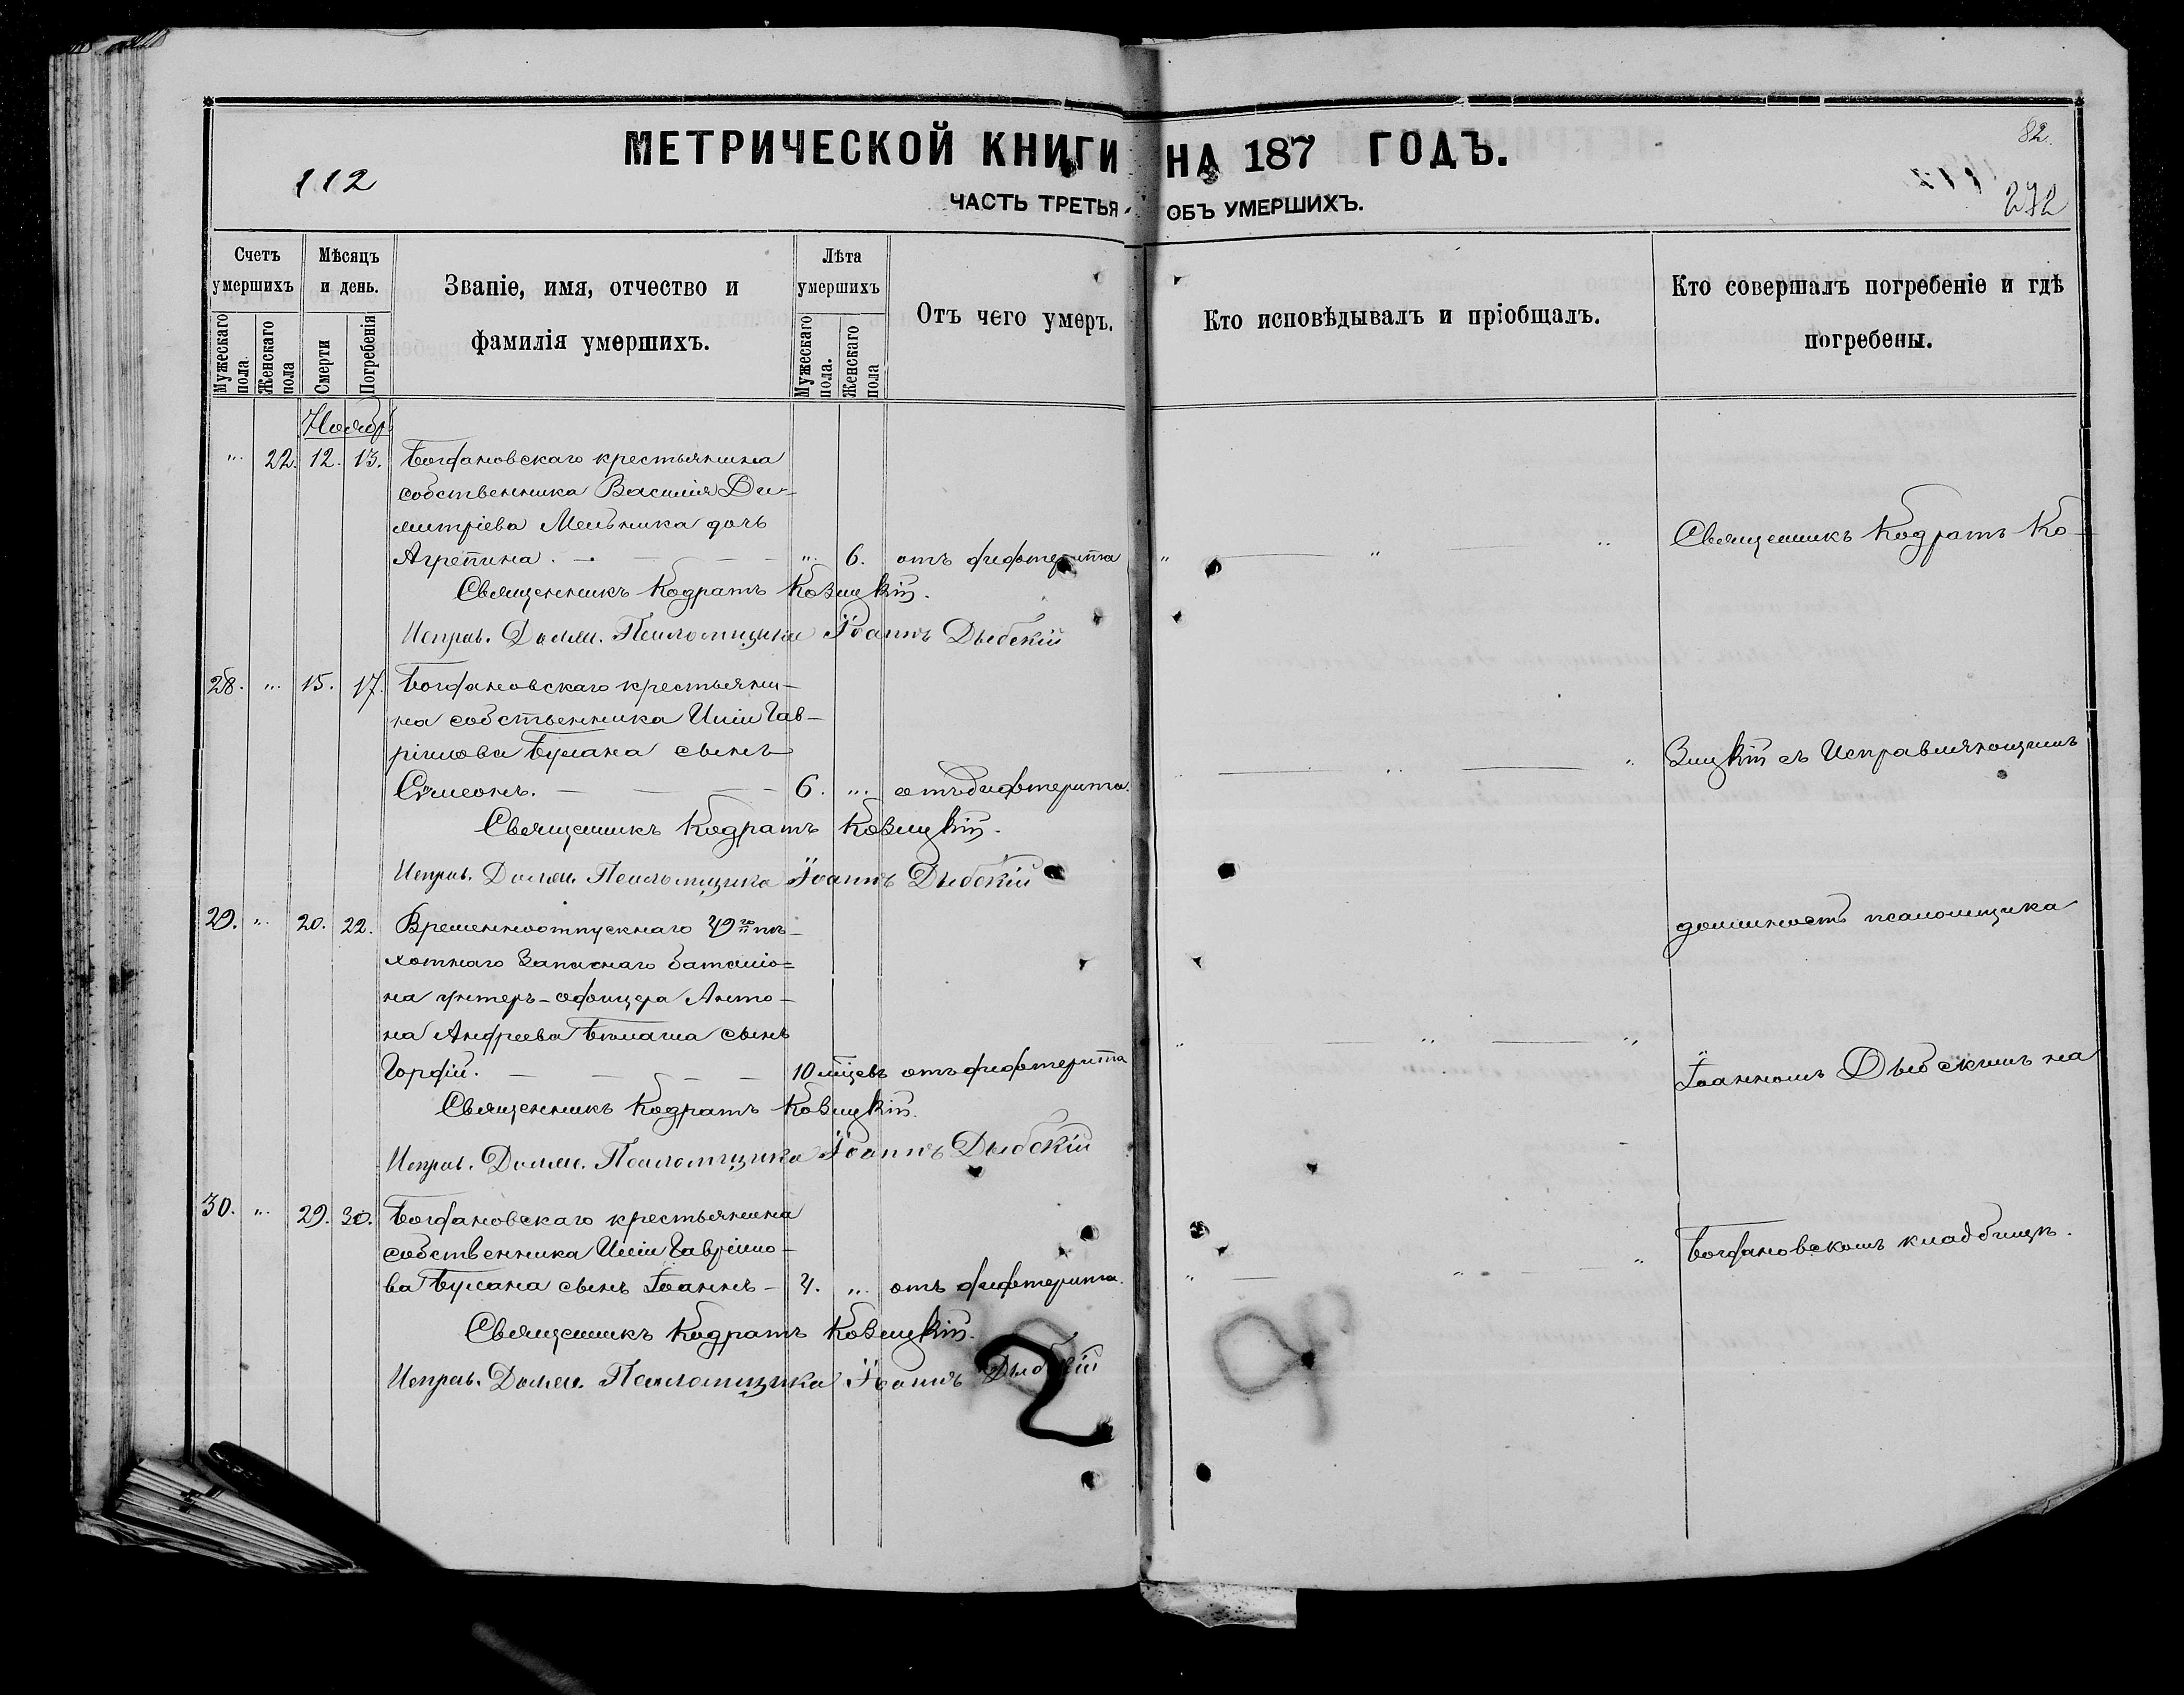 МЕТРИЧЕСКОЙ КНИГИ НА 187 ГОДЪ.
82.
112
ЧАСТЬ ТРЕТЬЯ ОБЪ УМЕРШИХЪ.
272
Счетъ умершихъ
Мужескаго пола.
Женскаго пола
Мѣсяцъ и день.
Смерти
Погребенія
Званіе, имя, отчество и
фамилія умершихъ.
Лѣта умершихъ
Мужескаго пола.
Женскаго пола
Отъ чего умеръ.
Кто исповѣдывалъ и пріобщалъ.
Кто совершалъ погребеніе и гдѣ
погребены.
Ноябр
" 22. 12. 13. Богдановскаго крестьянина
собственника Василія Ди-
митріева Мельника дочь
Агрепина. — " 6. отъ дифтерита " " "
Священникъ Кодратъ Козицкій.
Исправ. Должн. Псаломщика Іоаннъ Дыбскій
28. " 15. 17. Богдановскаго крестьяни-
на собственника Иліи Гав-
ріилова Булана сынъ
Сѵмеонъ. — 6. " отъ дифтерита. " " "
Священникъ Кодратъ Козицкій.
Исправ. Должн. Псаломщика Іоаннъ Дыбскій
29. " 20. 22. Временноотпускнаго 49го пѣ-
хотнаго Запаснаго баталіо-
на унтеръ-офицера Анто-
на Андреева сынъ
Гордій. — 10 мѣцевъ отъ дифтерита " " "
Священникъ Кодратъ Козицкій.
Исправ. Должн. Псаломщика Іоаннъ Дыбскій
30. " 29. 30. Богдановскаго крестьянина
собственника Иліи Гавріило-
ва Булана сынъ Іоаннъ — 4. " отъ дифтерита. " " "
Священникъ Кодратъ Козицкій.
Исправ. Должн. Псаломщика Іоаннъ Дыбскій
Священникъ Кодратъ Ко-
зицкій съ Исправляющимъ
должность псаломщика
Іоанномъ Дыбскимъ на
Богдановскомъ кладбищѣ.